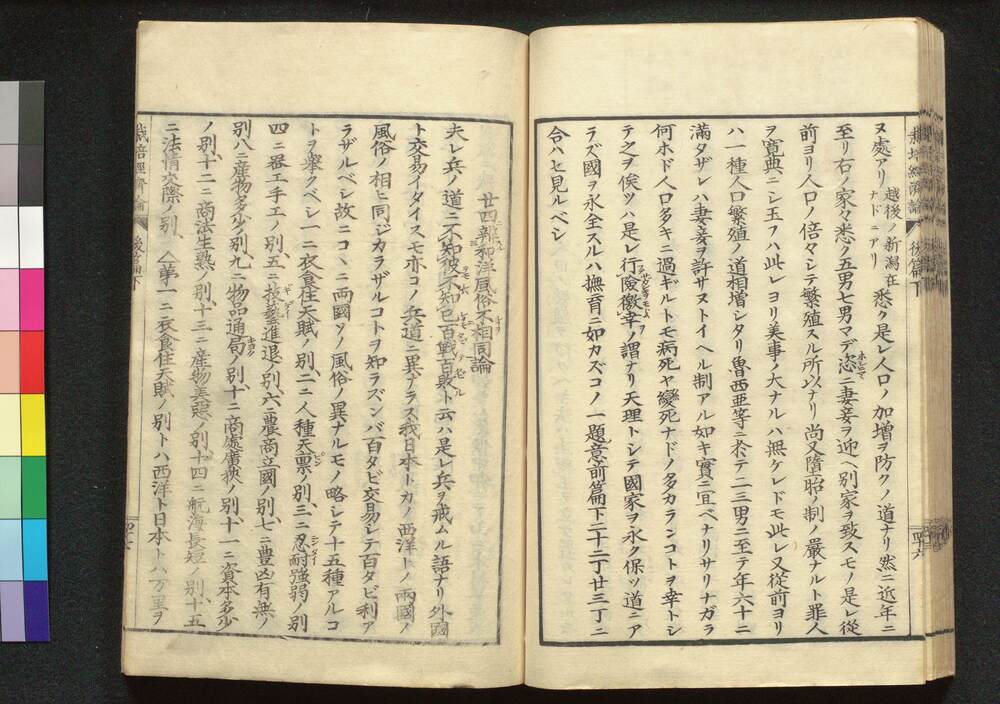 ヌ處アリ越後ノ新潟在ナドニアリ悉ク是レ人口ノ加増ヲ防クノ道ナリ然ニ近年ニ
至リ右ノ家々悉ク五男七男マデ恣ニ妻妾ヲ迎ヘ別家ヲ致スモノ是レ從
前ヨリ人口ノ倍々シテ繁殖スル所以ナリ尚又墮胎ノ制ノ嚴ナルト罪人
ヲ寛典ニシ玉フハ此レヨリ美事ノ大ナルハ無ケレドモ此レ又從前ヨリ
ハ一種人口繁殖ノ道相増シタリ魯西亜等ニ於テ二三男ニ至テ年六十ニ
滿タザレハ妻妾ヲ許サヌトイヘル制アル如キ實ニ宜ベナリサリナガラ
何ホド人口多キニ過ギルトモ病死ヤ變死ナドノ多カランコトヲ幸トシ
テ之ヲ俟ツハ是レ行險徼幸ノ謂ナリ天理トシテ國家ヲ永ク保ツ道ニア
ラズ國ヲ永全スルハ撫育ニ如カズコノ一題意前篇下二十二丁廿三丁ニ
合ハセ見ルベシ
栽培經濟論 後篇下 四十六
廿四 辯和洋風俗不相同論
夫レ兵ノ道ニ不知彼不知己百戰百敗ト云ハ是レ兵ヲ戒ムル語ナリ外國
ト交易イタイスモ亦コノ兵道ニ異ナラス我日本トカノ西洋トノ兩國ノ
風俗ノ相ヒ同ジカラザルコトヲ知ラズンバ百タビ交易シテ百タビ利ア
ラザルベシ故ニコヽニ兩國ソノ風俗ノ異ナルモノ略シテ十五種アルコ
トヲ擧クベシ一ニ衣食住天賦ノ別、二ニ人種天禀ノ別、三ニ忍耐強弱ノ別
四ニ器工手工ノ別、五ニ技藝進退ノ別、六ニ農商立國ノ別、七ニ豊凶有無ノ
別八ニ産物多少ノ別、九ニ物品通局ノ別、十ニ商處廣狹ノ別、十一ニ資本多少
ノ別、十二ニ商法生熟ノ別、十三ニ産物美惡ノ別、十四ニ航海長短ノ別、十五
ニ法情交際ノ別、△第一ニ衣食住天賦ノ別トハ西洋ト日本トハ万里ヲ
栽培經濟論 後篇下 四十七